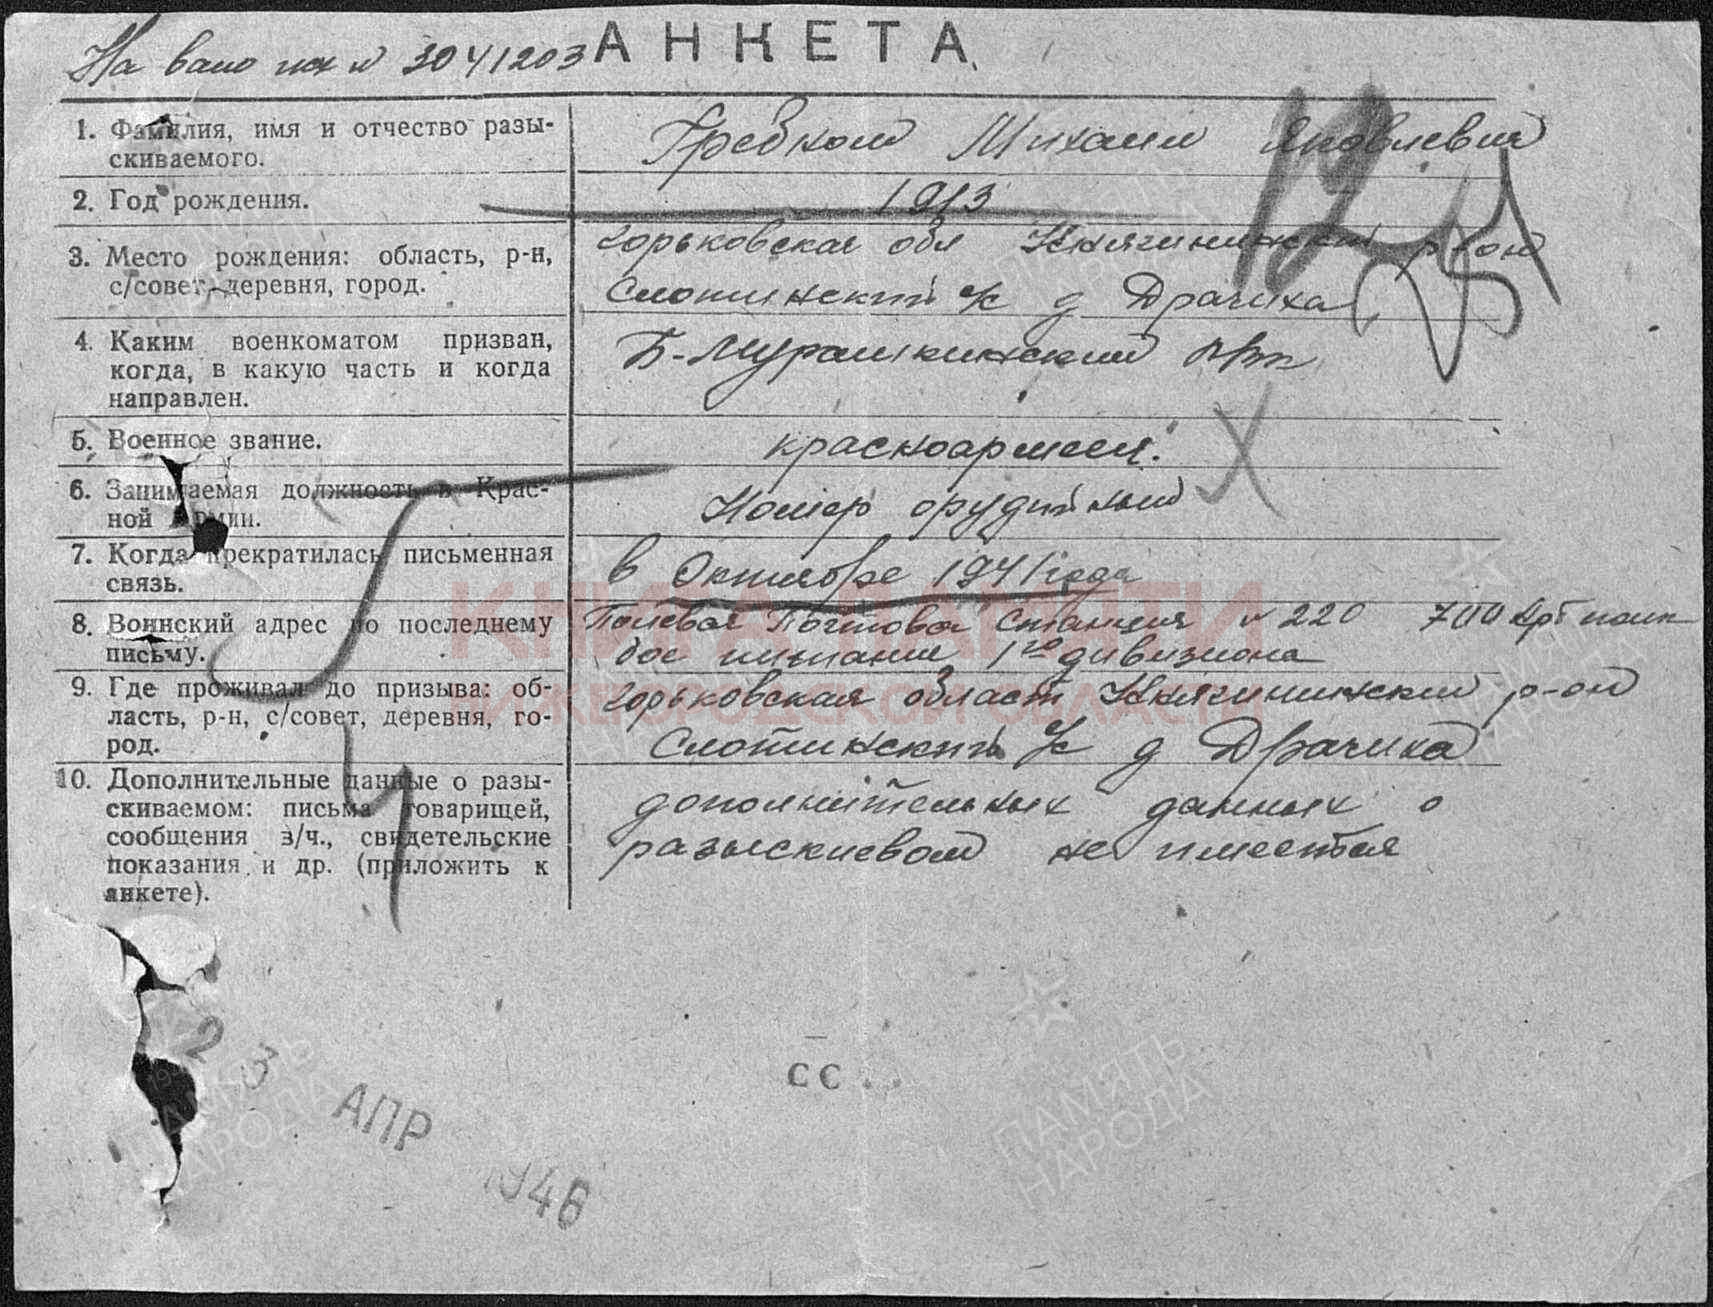 На ваш исх № 3041203 АНКЕТА
1. Фамилия, имя и отчество разы-
скиваемого.
Гребнов Михаил Яковлевич
2. Год рождения.
1913
3. Место рождения: область, р-н,
с/совет, деревня, город.
Горьковская обл Княгининский р-он
Слотинский с/с д Драчиха
4. Каким военкоматом призван,
когда, в какую часть и когда
направлен.
Б-Мурашкинский РВК
5. Военное звание.
красноармеец.
6. Занимаемая должность в Крас-
ной Армии.
Номер орудийный
7. Когда прекратилась письменная
связь.
в Октябре 1941 года
8. Воинский адрес по последнему
письму.
Полевая Почтовая Станция № 220 700 Арт полк
бое питание 1го дивизиона
9. Где проживал до призыва: об-
ласть, р-н, с/совет, деревня, го-
род.
Горьковская област Княгининский р-он
Слотинский с/с д Драчиха
10. Дополнительные данные о разы-
скиваемом: письма товарищей,
сообщения в/ч., свидетельские
показания и др. (приложить к
анкете).
дополнительных данных о
разыскиевом не имеется
КНИГА ПАМЯТИ
НИЖЕГОРОДСКОЙ ОБЛАСТИ
ПАМЯТЬ
НАРОДА
СС
23 АПР 1946